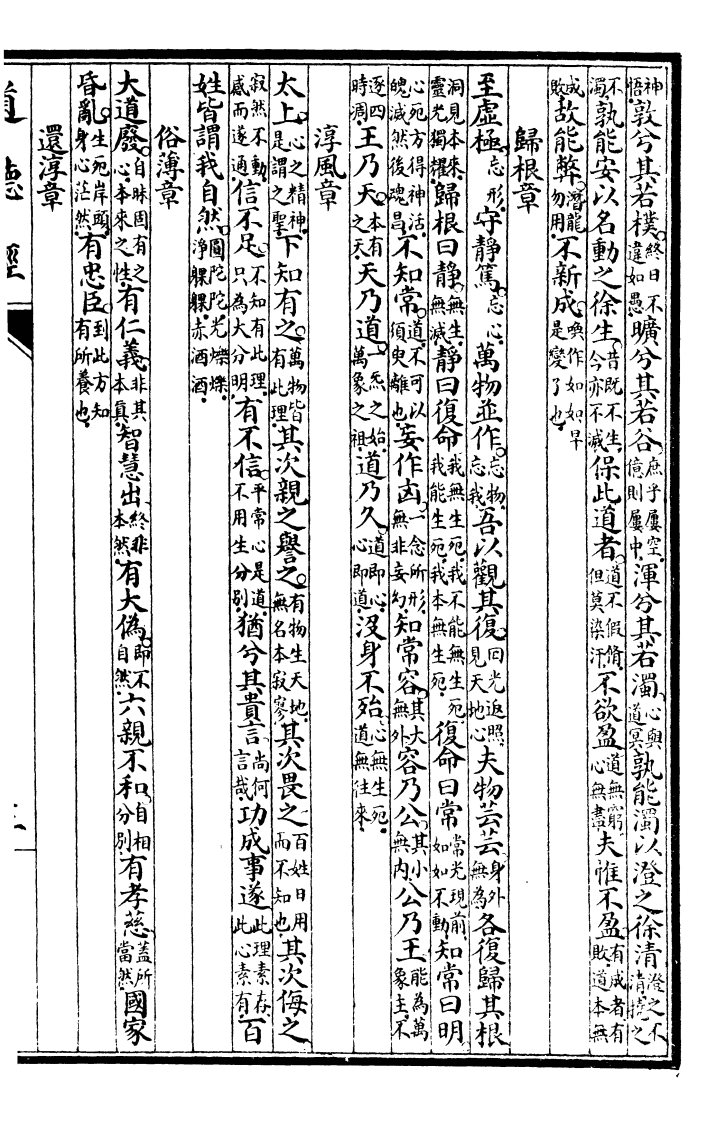 神悟。敦兮其若樸。終日不違如愚。曠兮其若谷。庶乎屢空。億則屢中。渾兮其若濁。心與道冥。孰能濁以澄之徐清。澄之不清。撓之
不濁。孰能安以名動之徐生。昔既不生。今亦不滅。保此道者。道不假脩。但莫染汙。不欲盈。道無窮。心無盡。夫惟不盈。有成者有敗。道本無
成敗。故能弊。潛龍勿用。不新成。喚作如如早是變了也。
歸根章
至虛極。忘形。守靜篤。忘心。萬物並作。忘物。忘我。吾以觀其復。回光返照。見天地心。夫物芸芸。身外無為。各復歸其根
洞見本來。靈光獨耀。歸根曰靜。無生。無滅。靜曰復命。我無生死。我不能無生死。我能生死。我本無生死。復命曰常。常光現前。如如不動。知常曰明
心死方得神活。魄滅然後魂昌。不知常。道不可以須臾離也。妄作凶。一念所形。無非妄幻。知常容。其大無外。容乃公。其小無內。公乃王。能為萬象主。不
逐四時凋。王乃天。本有之天。天乃道。一炁之始。萬象之祖。道乃久。道即心。心即道。沒身不殆。心無生死。道無往來。
淳風章
太上。心之精神。是謂之聖。下知有之。萬物皆有此理。其次親之譽之。有物生天地。無名本寂寥。其次畏之。百姓日用而不知也。其次侮之
寂然不動。感而遂通。信不足。不知有此理。只為大分明。有不信。平常心是道。不用生分別。猶兮其貴言。尚何言哉。功成事遂。此理素存。此心素有。百
姓皆謂我自然。圓陀陀。光爍爍。淨躶躶。赤洒洒。
俗薄章
大道廢。自昧固有之心。本來之性。有仁義。非其本真。智慧出。終非本然。有大偽。即不自然。六親不和。自相分別。有孝慈。蓋所當然。國家
昏亂。生死岸頭。身心茫然。有忠臣。到此方知有所養也。
還淳章
道德經
三